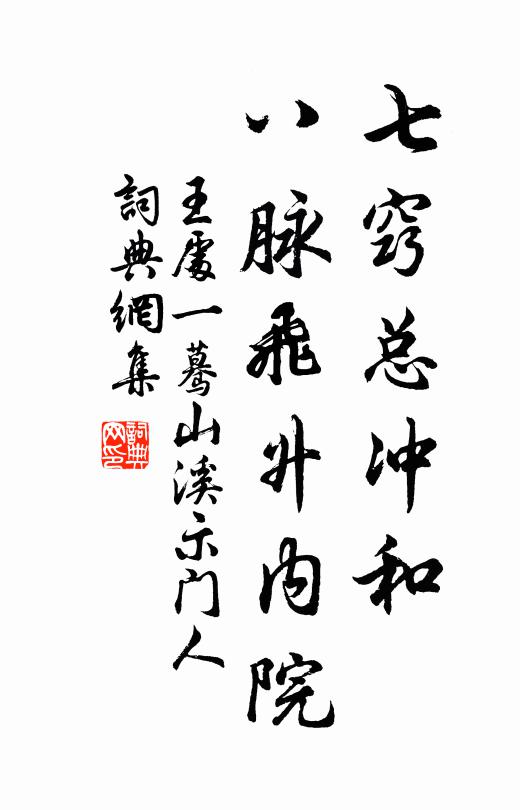 七窍总冲和
八脉飛升内院
王處一蓦山溪示门人
詞典網集
詞典
网印